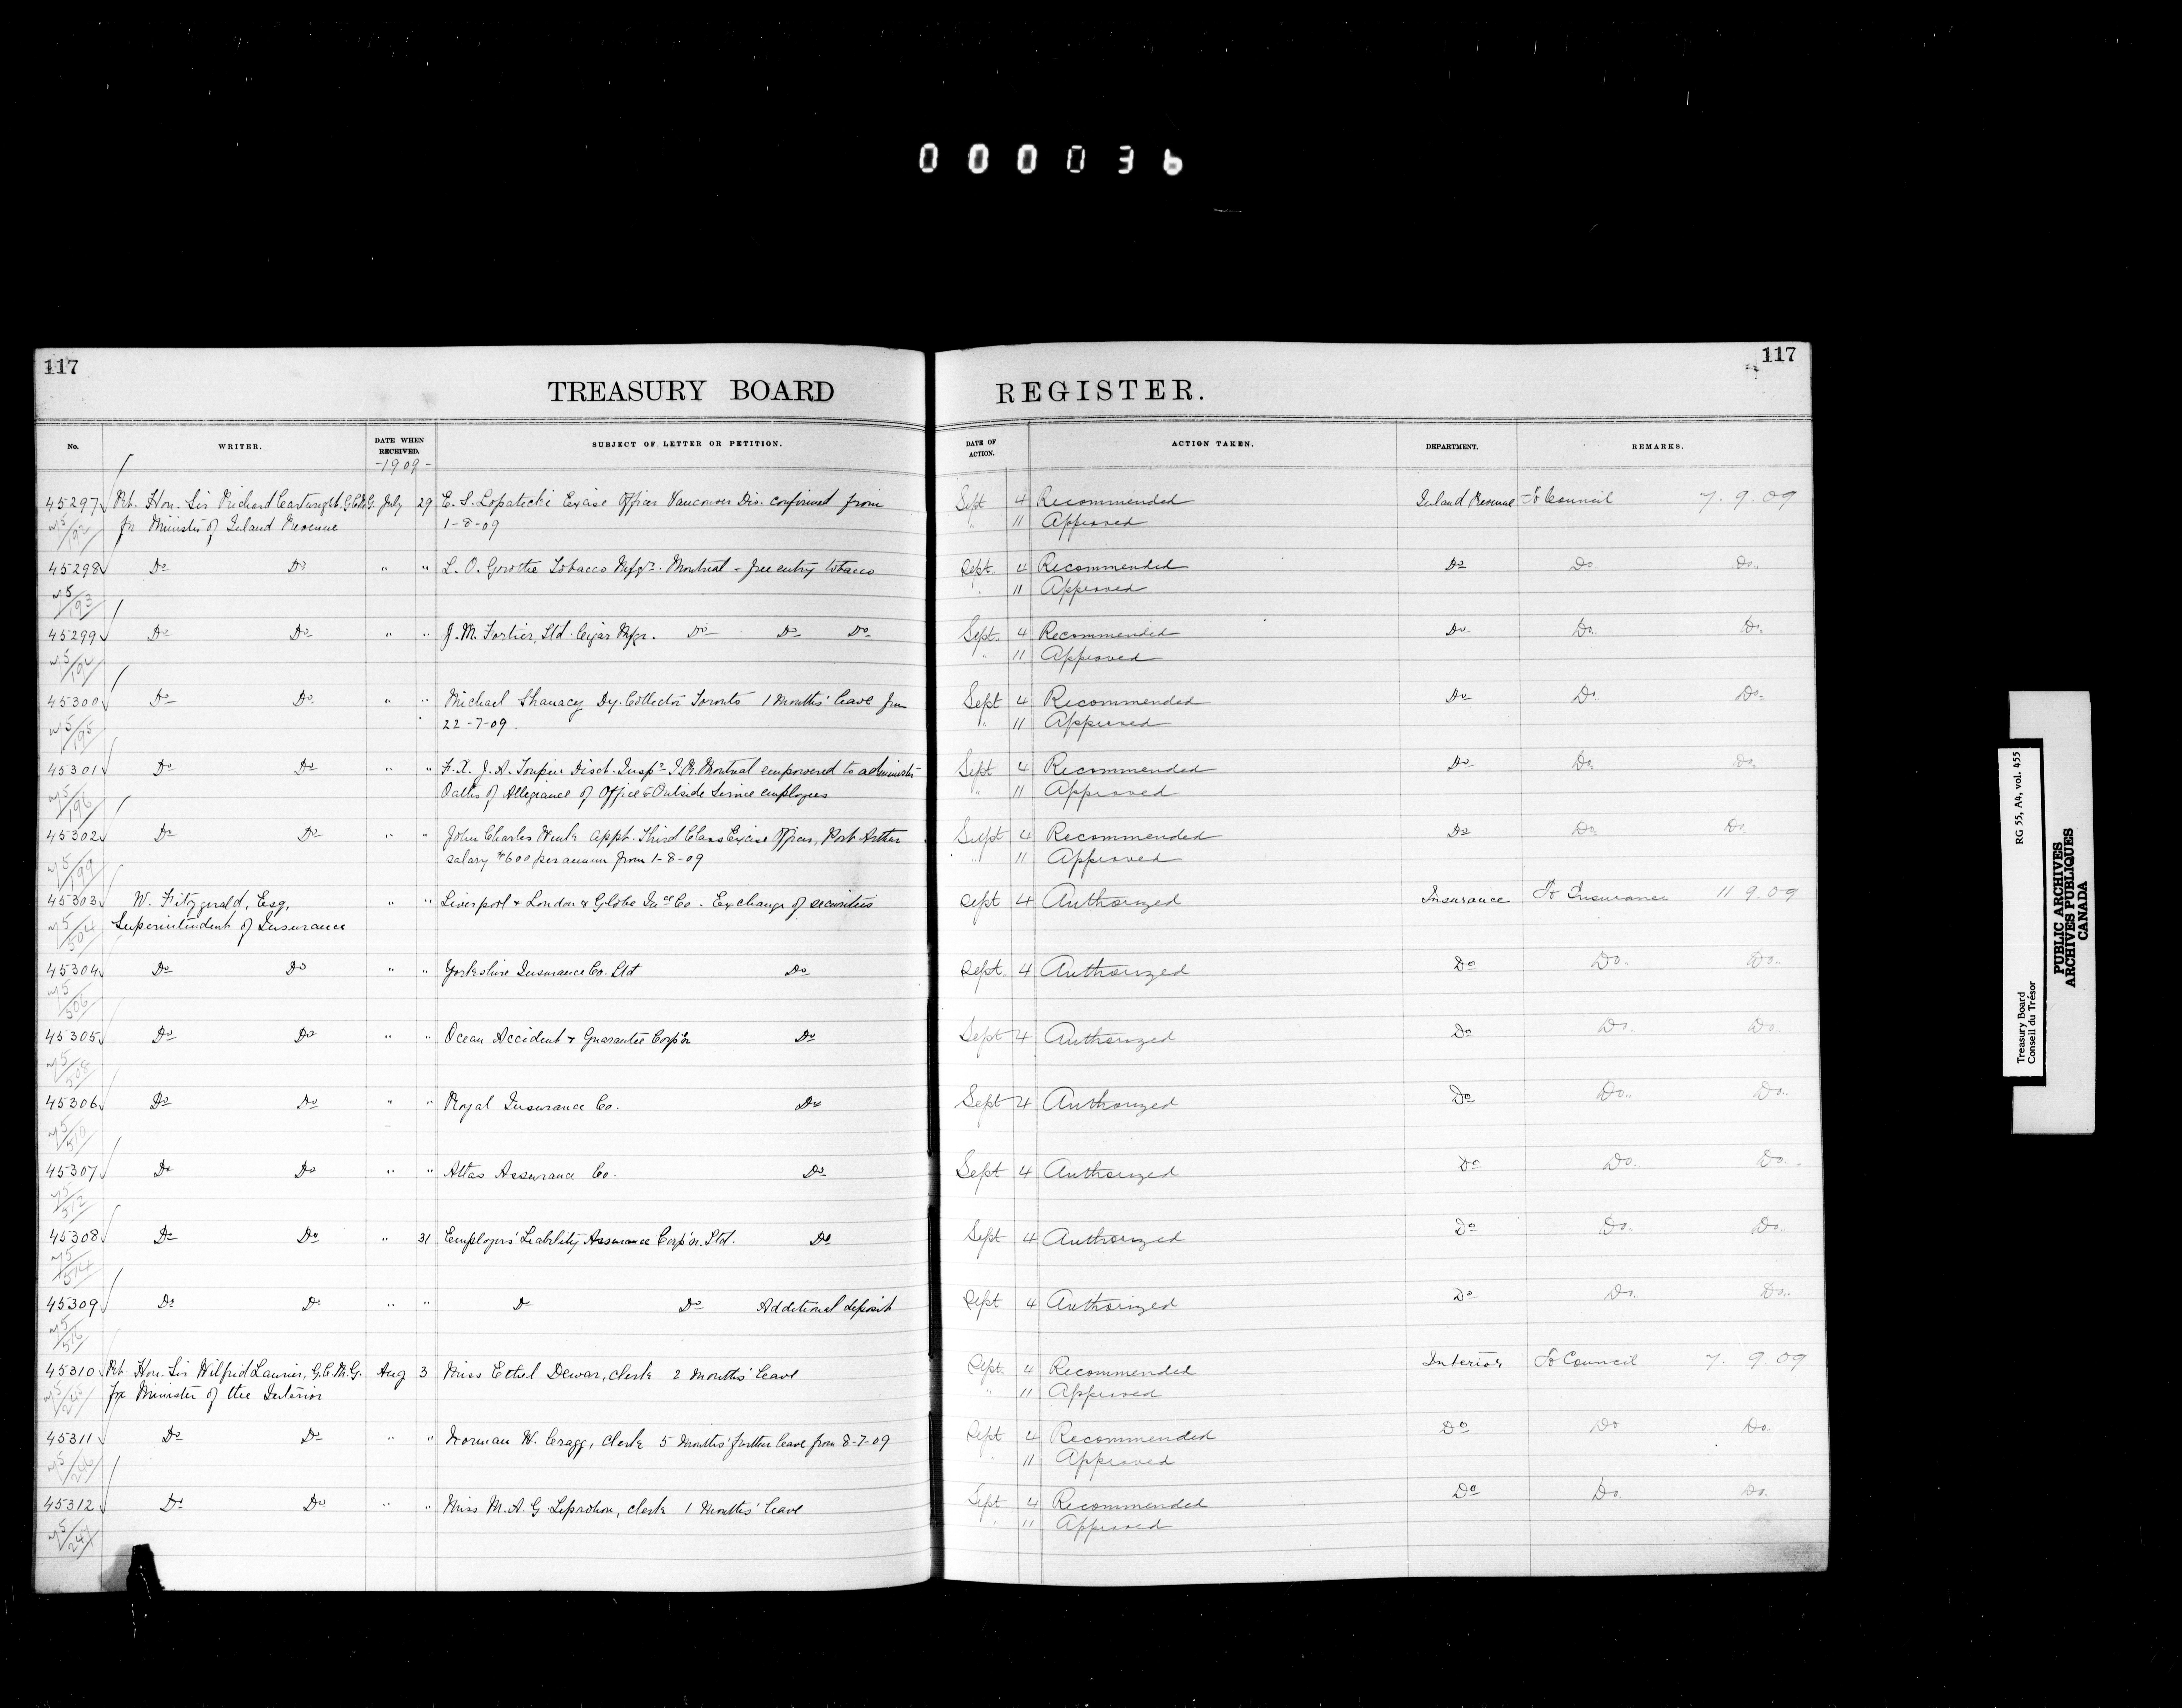 000036
117
117
TREASURY BOARD REGISTER.
No. WRITER. DATE WHEN RECEIVED. SUBJECT OF LETTER OR PETITION. DATE OF ACTION. ACTION TAKEN. DEPARTMENT. REMARKS.
-1909-
45297 Rt. Hon. Sir Richard Cartwright, G.C.M.G. July 29 E. S. Lopatecki Excise Officer Vancouver Div. confirmed from Sept 4 Recommended Inland Revenue To Council 7. 9. 09
for Minister of Inland Revenue 1-8-09 " 11 Approved
45298 Do Do " " L. O. Grothe Tobacco Mfgr. Montreal - free entry tobacco Sept. 4 Recommended Do Do. Do.
75/193 " 11 Approved
45299 Do Do " " J. M. Fortier, Ltd. Cigar Mfgr. Do Do Do Sept. 4 Recommended Do Do. Do.
75/194 " 11 Approved
45300 Do Do " " Michael Shanacy Dy. Collector Toronto 1 Months' leave from Sept 4 Recommended Do Do. Do.
75/195 22-7-09. " 11 Approved
45301 Do Do " " F. X. J. A. Toupin Disct. Inspr. I.R. Montreal empowered to administer Sept 4 Recommended Do Do. Do.
75/196 Oaths of Allegiance of Office to Outside Service employees 11 Approved
45302 Do Do " " John Charles Wink appt. Third Class Excise Officer, Port Arthur Sept 4 Recommended Do Do. Do.
75/199 salary $600 per annum from 1-8-09 " 11 Approved
45303 W. Fitzgerald, Esq, " " Liverpool & London & Globe Ince Co. Exchange of securities Sept 4 Authorized Insurance To Insurance 11 9. 09
75/504 Superintendent of Insurance
45304 Do Do " " Yorkshire Insurance Co. Ltd Do Sept. 4 Authorized Do Do. Do.
75/506
45305 Do Do " " Ocean Accident & Guarantee Corp'n Do Sept 4 Authorized Do Do. Do.
75/508
45306 Do Do " " Royal Insurance Co. Do Sept 4 Authorized Do Do. Do.
75/510
45307 Do Do " " Atlas Assurance Co. Do Sept 4 Authorized Do Do. Do.
75/512
45308 Do Do " 31 Employers' Liability Assurance Corp'n. Ltd. Do Sept 4 Authorized Do Do. Do.
75/514
45309 Do Do " " Do Do Additional deposit Sept 4 Authorized Do Do. Do.
75/516
45310 Rt. Hon. Sir Wilfrid Laurier, G.C.M.G. Aug 3 Miss Ethel Dewar, clerk 2 Months' leave Sept. 4 Recommended Interior To Council 7. 9. 09
for Minister of the Interior " 11 Approved
45311 Do Do " " Norman W. Cragg, clerk 5 Months' further leave from 8-7-09 Sept 4 Recommended Do Do Do.
75/246 " 11 Approved
45312 Do Do " " Miss M. A. G. Leprohon, clerk 1 Months' leave Sept 4 Recommended Do Do. Do.
75/247 " 11 Approved
Treasury Board RG 55, A4, vol. 455
Conseil du Trésor
PUBLIC ARCHIVES
ARCHIVES PUBLIQUES
CANADA